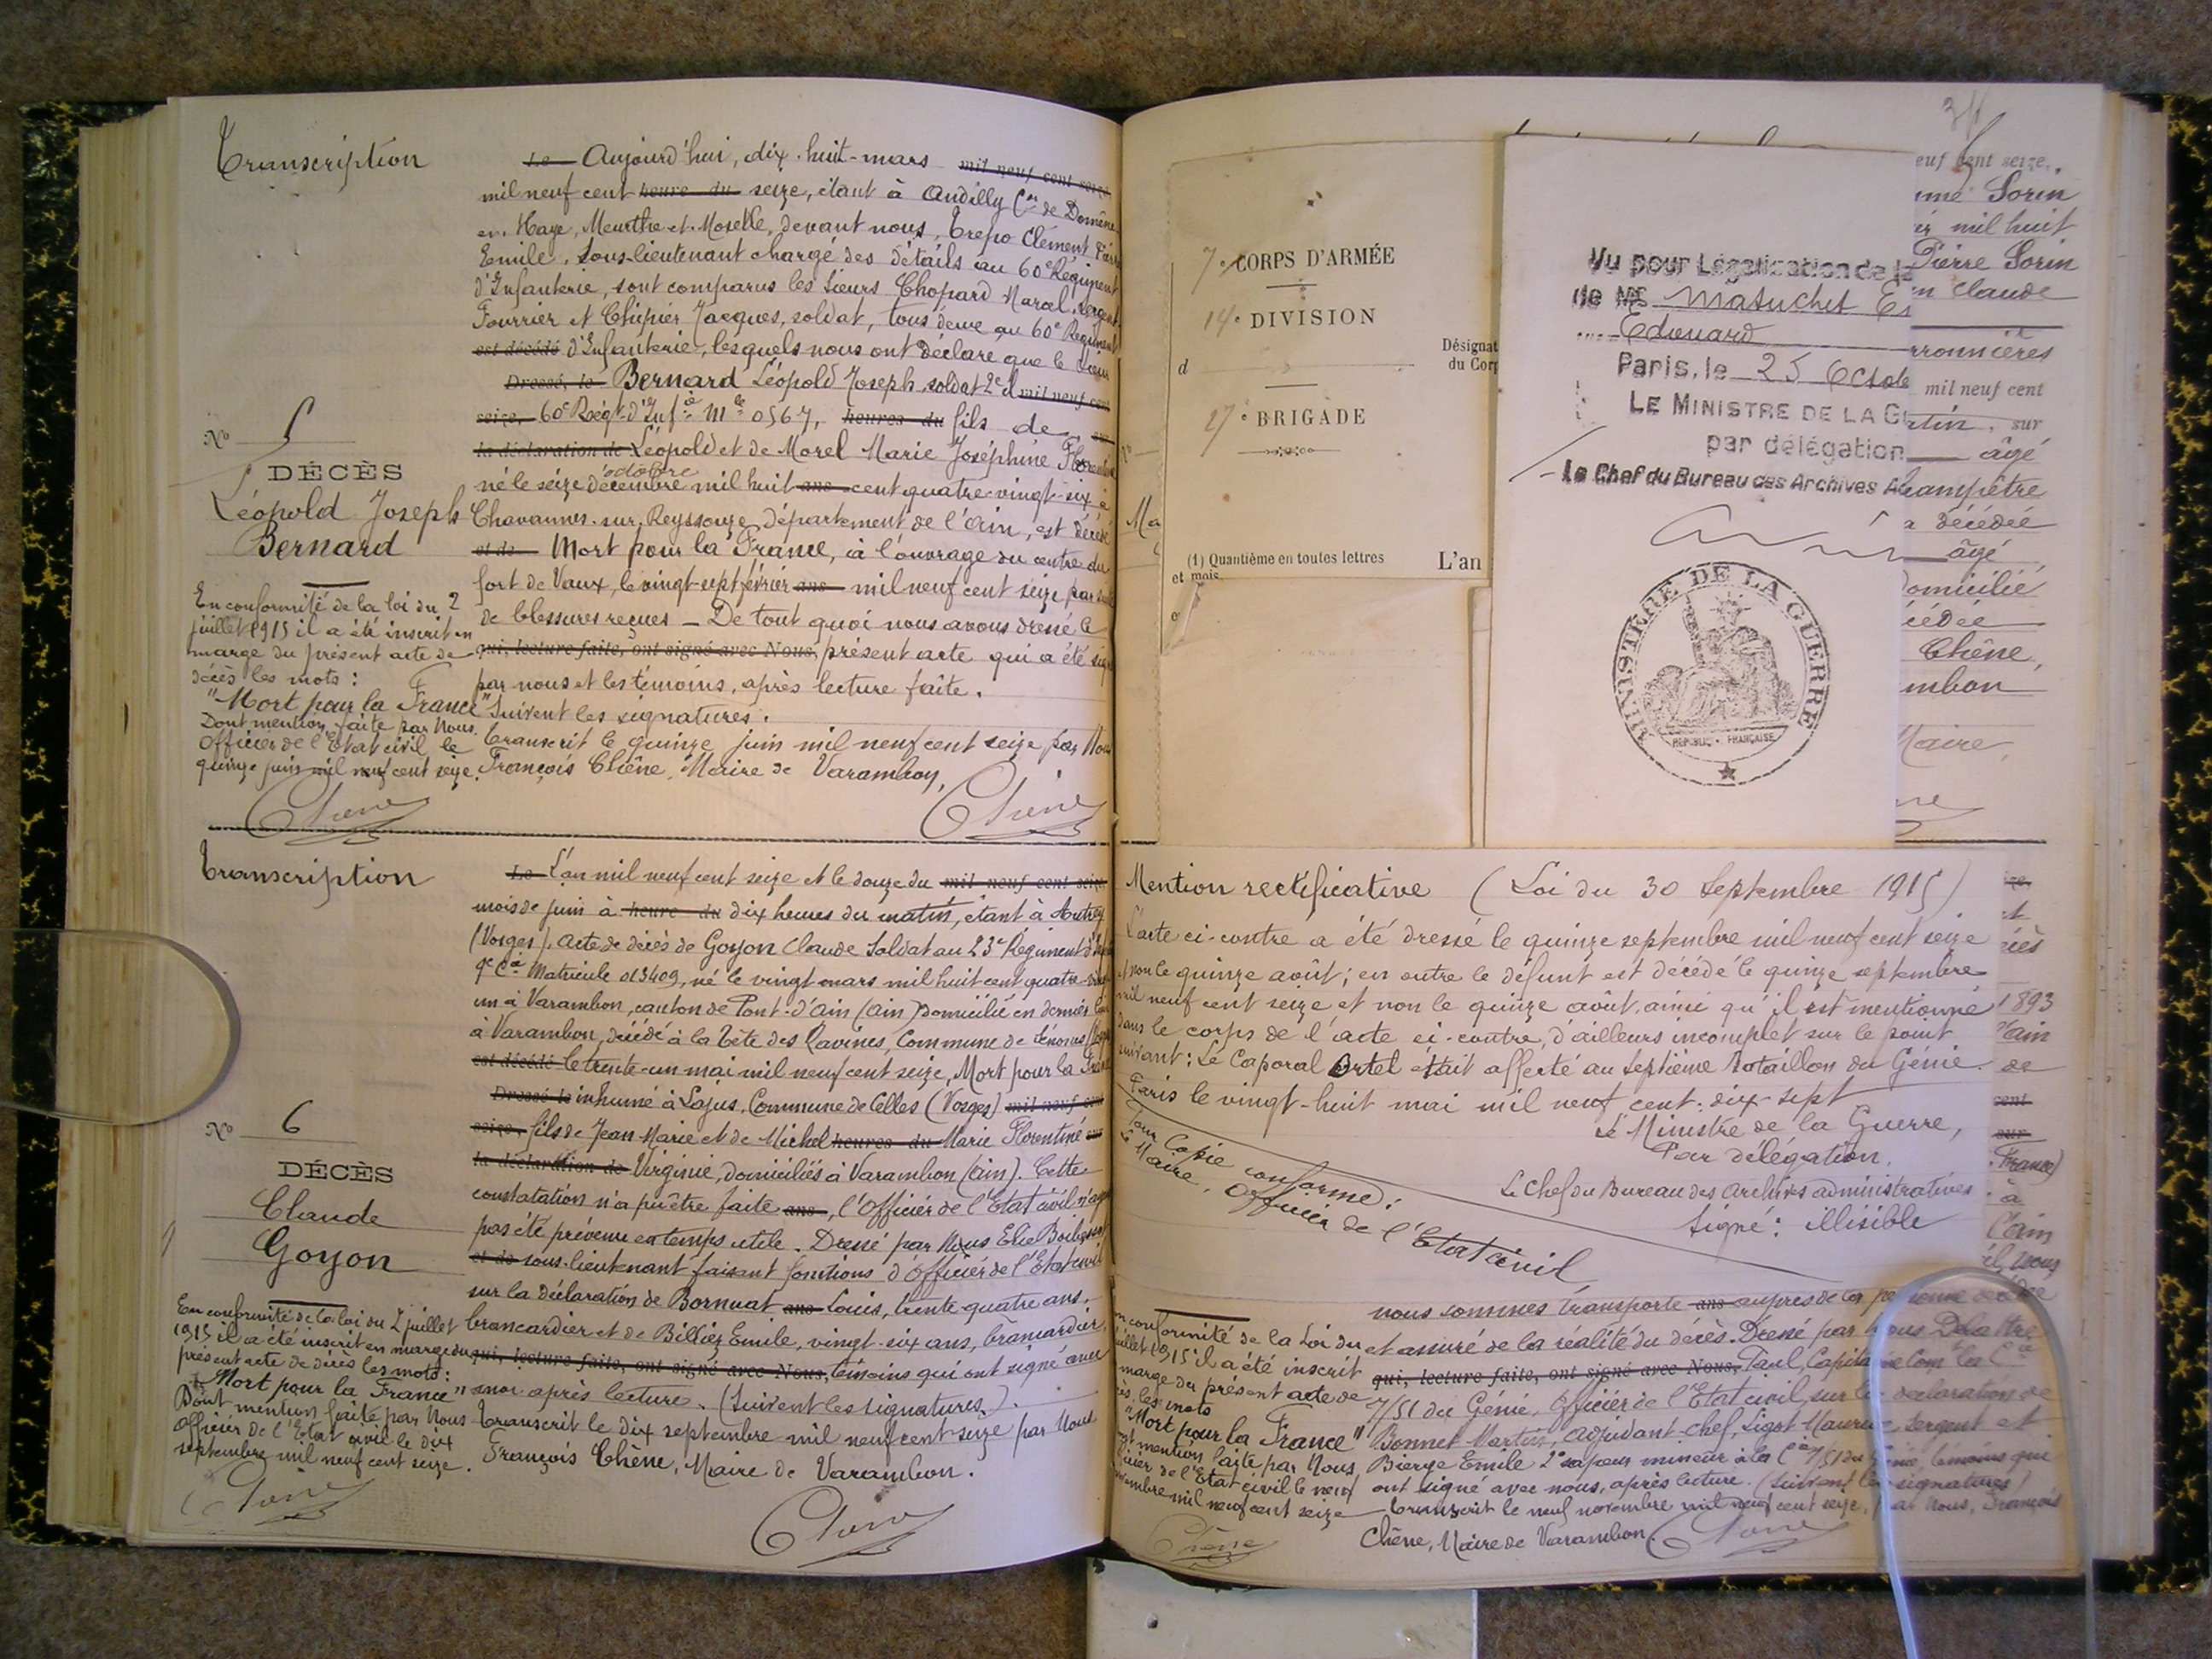 Transcription
Le Aujourd'hui, dix-huit-mars mil neuf cent seize
mil neuf cent heure du seize, étant à Andilly Con de Domèvre
en Haye, Meurthe et Moselle, devant nous, Crepo Clément
Emile, Sous-lieutenant chargé des détails au 60e Régiment
d'Infanterie, sont comparus les sieurs Chopard Marcel, sergent
Fourrier et Chipier Jacques, soldat, tous deux au 60e Régiment
est décédé d'Infanterie, lesquels nous ont déclaré que le sieur
Dressé, le Bernard Léopold Joseph soldat 2e cl mil neuf cent
seize, 60e Régt d'Infie Mle 0567, heures du fils de sur
la déclaration de Léopold et de Morel Marie Joséphine
octobre
né le seize décembre mil huit ans cent quatre-vingt-six à
Chavannes-sur-Reyssouze Département de l'Ain, est décédé
et de Mort pour la France, à l'ouvrage du centre du
fort de Vaux, le vingt-sept février ans mil neuf cent seize par suite
de blessures reçues — De tout quoi nous avons dressé le
qui, lecture faite, ont signé avec Nous, présent acte qui a été signé
par nous et les témoins, après lecture faite.
Suivent les signatures.
Transcrit le quinze juin mil neuf cent seize par Nous
François Chêne, Maire de Varambon,
Chêne
No 5
DÉCÈS
Léopold Joseph
Bernard
En conformité de la loi du 2
juillet 1915 il a été inscrit en
marge du présent acte de
décès les mots :
"Mort pour la France"
Dont mention faite par Nous
Officier de l'Etat civil le
quinze juin mil neuf cent seize.
Chêne
Transcription
Le L'an mil neuf cent seize et le douze du mil neuf cent seize
mois de juin à heure du dix heures du matin, étant à Autrey
(Vosges). Acte de décès de Goyon Claude Soldat au 23e Régiment
9e Cie Matricule 013409, né le vingt mars mil huit cent quatre-vingt
un à Varambon, canton de Pont-d'Ain (Ain) Domicilié en dernier lieu
à Varambon, décédé à la Tête des Ravines, Commune de
est décédé le trente-un mai mil neuf cent seize, Mort pour la France
Dressé le inhumé à Lajus, Commune de Celles (Vosges) mil neuf cent
seize, fils de Jean Marie et de Michel heures du Marie Florentine sur
la déclaration de Virginie, domiciliés à Varambon (Ain). Cette
constatation n'a pu être faite ans, l'Officier de l'Etat civil n'ayant
pas été prévenu en temps utile. Dressé par Nous Elie
et de sous-lieutenant faisant fonctions d'Officier de l'Etat civil
sur la déclaration de Bornuat ans Louis, trente quatre ans,
brancardier et de Billiez Emile, vingt-six ans, brancardier,
qui, lecture faite, ont signé avec Nous, témoins qui ont signé avec
moi après lecture. (Suivent les signatures.)
Transcrit le dix septembre mil neuf cent seize par Nous
François Chêne, Maire de Varambon.
Chêne
No 6
DÉCÈS
Claude
Goyon
En conformité de la loi du 2 juillet
1915 il a été inscrit en marge du
présent acte de décès les mots :
"Mort pour la France"
Dont mention faite par Nous
Officier de l'Etat civil le dix
septembre mil neuf cent seize.
Chêne
7e CORPS D'ARMÉE
14e DIVISION
d
27e BRIGADE
Désignat
du Corp
(1) Quantième en toutes lettres
et mois
L'an
Vu pour Légalisation de la
de Mr Masuchet
Edouard
Paris, le 25 Octob
LE MINISTRE DE LA GU
par délégation
Le Chef du Bureau des Archives A
MINISTÈRE DE LA GUERRE
RÉPUBLIQUE FRANÇAISE
euf cent seize.
Sorin
mil huit
Pierre Sorin
n Claude
mil neuf cent
atin, sur
âgé
ampêtre
a décédée
âgé
domicilié
cédée
Chêne,
mbon
Maire,
Mention rectificative (Loi du 30 Septembre 1915)
L'acte ci-contre a été dressé le quinze septembre mil neuf cent seize
et non le quinze août; en outre le défunt est décédé le quinze septembre
mil neuf cent seize et non le quinze août ainsi qu'il est mentionné
dans le corps de l'acte ci-contre, d'ailleurs incomplet sur le point
suivant : Le Caporal Ortel était affecté au Septième Bataillon du Génie.
Paris le vingt-huit mai mil neuf cent dix-sept
Le Ministre de la Guerre,
Par délégation,
Le Chef du Bureau des Archives administratives
Signé : illisible
Pour Copie conforme :
Le Maire, Officier de l'Etat civil,
1893
l'Ain
de
cent
sur
France)
à
l'Ain
nous sommes transporté ans auprès de la personne décédée
et assuré de la réalité du décès. Dressé par Nous Delattre
qui, lecture faite, ont signé avec Nous, Paul, Capitaine Comt la Cie
7/51 du Génie, Officier de l'Etat civil, sur la déclaration de
Bonnet Martin, adjudant-chef, Sigot Maurice, sergent et
Bierge Emile 2e sapeur mineur à la Cie 7/51 du Génie, témoins qui
ont signé avec nous, après lecture. (Suivent les signatures)
Transcrit le neuf novembre mil neuf cent seize, par Nous, François
Chêne, Maire de Varambon. Chêne
En conformité de la Loi du
juillet 1915 il a été inscrit
marge du présent acte de
décès, les mots
"Mort pour la France"
mention faite par Nous,
Officier de l'Etat civil le neuf
novembre mil neuf cent seize
Chêne